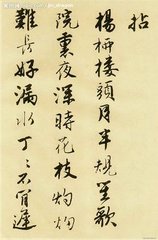 拈
楊柳楼頭月半規笙歌
院裏夜深時花枝灼灼
難長好漏水丁丁不肯遲